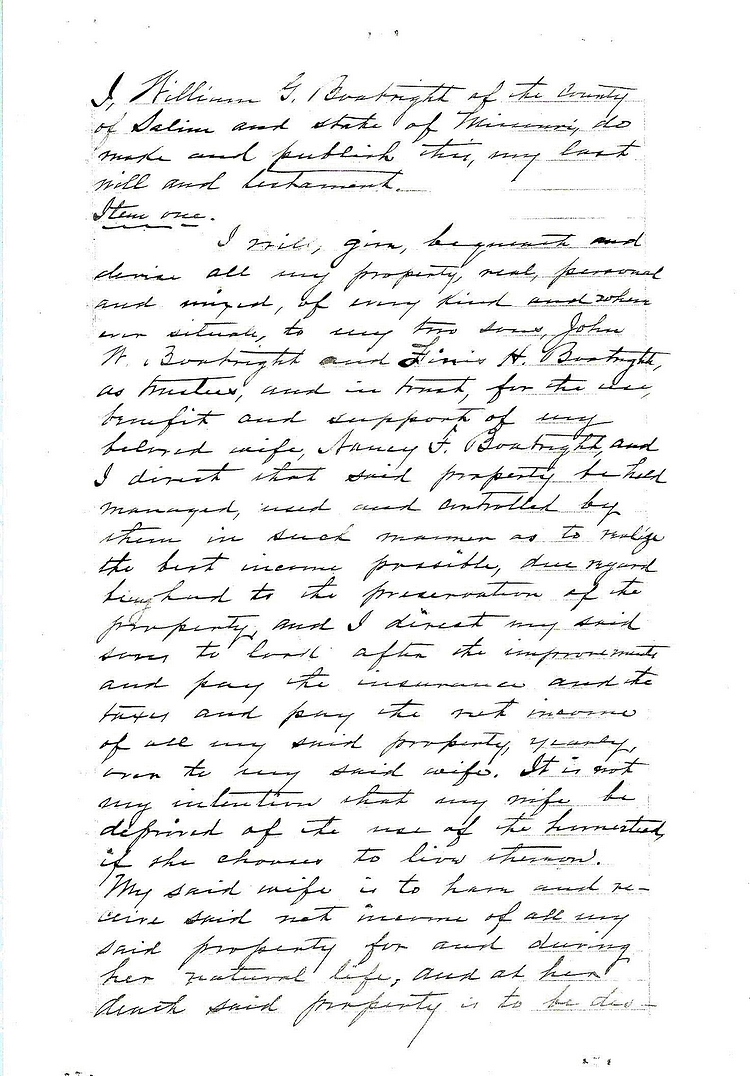 I, William G. Boatright of the County
of Saline and state of Missouri, do
make and publish this, my last
will and testament.
Item one.
I will, give, bequeath and
devise all my property, real, personal
and mixed, of every kind and wher
ever situate, to my two sons, John
W. Boatright and Finis H. Boatright,
as trustees, and in trust, for the use,
benefit and support of my
beloved wife, Nancy F. Boatright, and
I direct that said property be held
managed, used and controlled by
them in such manner as to realize
the best income possible, due regard
being had to the preservation of the
property, and I direct my said
sons to look after the improvements
and pay the insurance and the
taxes and pay the net income
of all my said property, yearly,
over to my said wife. It is not
my intention that my wife be
deprived of the use of the homestead,
if she chooses to live thereon.
My said wife is to have and re-
ceive said net income of all my
said property for and during
her natural life, and at her
death said property is to be des-